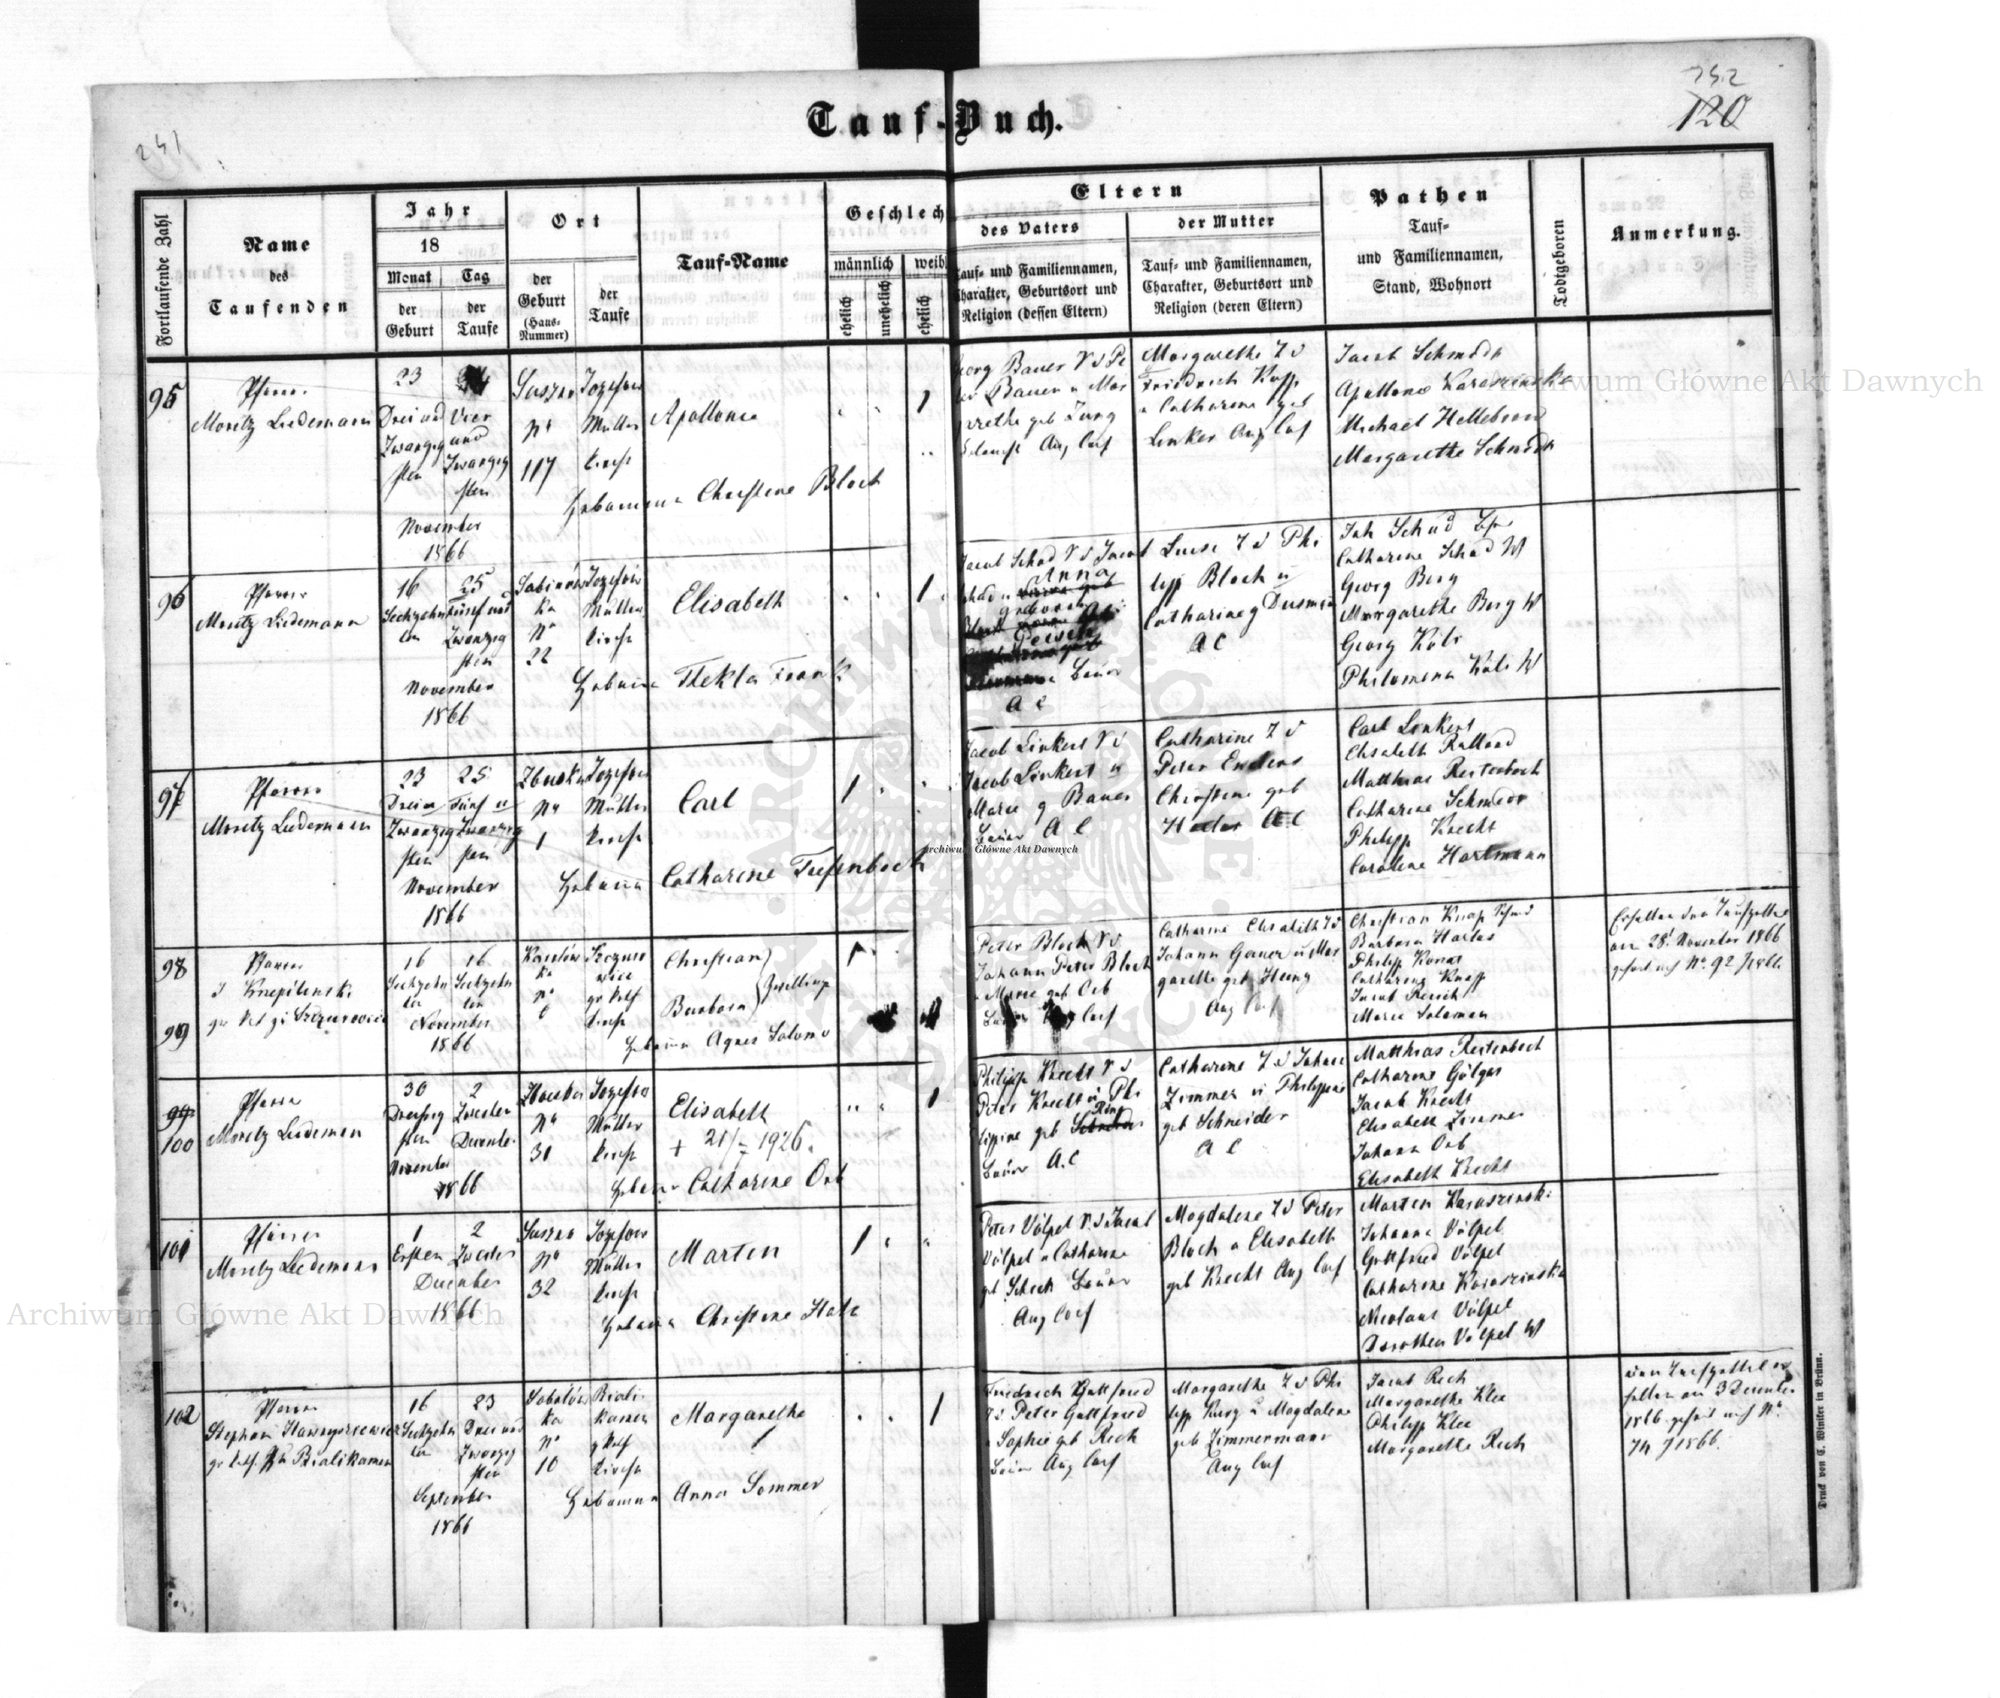 252
120
241
Tauf-Buch.
Fortlaufende Zahl
Name
des
Taufenden
Jahr
18
Monat
der
Geburt
Tag
der
Taufe
Ort
der
Geburt
(Haus-
Nummer)
der
Taufe
Tauf-Name
Geschlech
männlich
weibl
ehelich
unehelich
ehelich
Eltern
des Vaters
Tauf- und Familiennamen,
Charakter, Geburtsort und
Religion (dessen Eltern)
der Mutter
Tauf- und Familiennamen,
Charakter, Geburtsort und
Religion (deren Eltern)
Pathen
Tauf-
und Familiennamen,
Stand, Wohnort
Todtgeboren
Anmerkung.
95
Pfarrer
Moritz Liedemann
23
Drei und
Zwanzig
sten
Vier
und
Zwanzig
sten
November
1866
Suszno
Nº
117
Jozefow
Mutter
kirche
Apollonia
Hebamme Christine Bloch
1
Georg Bauer S d Pe
ter Bauer u Mar
garethe geb Jung
Aug Conf
Margarethe T d
Friedrich Kopp
u Catharina geb
Linker Aug Conf
Jacob Schmidt
Apollonia Karaszinska
Michael Hellebrand
Margarethe Schmidt
96
Pfarrer
Moritz Liedemann
16
Sechzehn
ten
25
Fünf und
Zwanzig
sten
November
1866
Sabinów
ka
Nº
22
Jozefów
Mutter
kirche
Elisabeth
Hebame Thekla Frank
1
Jacob Schad S d Jacob
Schad u Anna
geborene
Peisch
Bauer
A C
Luise T d Phi
lipp Bloch u
Catharine g Dusman
A C
Joh Schad
Catharine Schad W
Georg Berg
Margarethe Berg W
Georg Köls
Philomena Köls W
97
Pfarrer
Moritz Liedemann
23
Drei u
Zwanzig
sten
25
Fünf u
Zwanzig
sten
November
1866
Zbuska
Nº
1
Jozefow
Mutter
kirche
Carl
Hebame Catharine Tiefenbach
1
Jacob Linkert S d
Jacob Linkert u
Marie g Bauer
Bauer A C
Catharine T d
Peter Enders
Christine geb
A C
Carl Linkert
Elisabeth Rulland
Matthias Reitenbach
Catharine Schmidt
Philipp Knecht
Caroline Hartmann
98
99
Pfarrer
J Knepilenski
16
Sechzehn
ten
16
Sechzehn
ten
November
1866
Karolów
ka
Nº
6
kirche
Christian
Barbara
Zwillinge
Hebame Agnes Salomo
1
Peter Bloch S d
Johann Peter Bloch
u Marie geb Orb
Catharine Elisabeth T d
Johann Gauer u Mar
garethe geb Heung
Aug Conf
Christian Knap
Barbara Harlas
Philipp Konrat
Catharina Knapp
Jacob Reisch
Marie Salaman
Erhalten den Taufzettel
am 28 November 1866
Nº 92 J 1866
100
Pfarrer
Moritz Liedeman
30
Dreisig
sten
November
2
Zweiten
December
1866
Zboiska
Nº
31
Jozefow
Mutter
kirche
Elisabeth
+ 21/7 1926.
Hebame Catharine Orb
1
Philipp Knecht S d
Peter Knecht u Phi
lippine geb
Ring
Bauer A.C
Catharine T d Johann
Zimmer u Philippine
geb Schneider
A C
Matthias Reitenbach
Catharine Gölgas
Jacob Knecht
Elisabeth Zimmer
Johann Orb
Elisabeth Knecht
101
Pfarrer
Moritz Liedemann
1
Ersten
2
Zweiten
December
1866
Suszno
Nº
32
Jozefow
Mutter
kirche
Marten
Hebame Christine Hole
1
Peter Völpel S d Jacob
Völpel u Catharine
geb Scheck Bauer
Aug Conf
Magdalene T d Peter
Bloch u Elisabeth
geb Knecht Aug Conf
Marten Karaszinski
Johanna Völpel
Gottfried Völpel
Catharine Karaszinska
Nicolaus Völpel
Dorothea Völpel W
102
Pfarrer
Stephan Hawryszkiewicz
Bialikamen
16
Sechzehn
ten
23
Drei und
Zwanzig
sten
September
1866
Sobolów
ka
Nº
10
Biali
kamen
kirche
Margarethe
Hebamme Anna Sommer
1
Friedrich Gottfried
S d Peter Gottfried
u Sophie geb Rech
Bauer Aug Conf
Margarethe T d Phi
lipp Kurz u Magdalene
geb Zimmermann
Aug Conf
Jacob Rech
Margarethe Klee
Philipp Klee
Margarethe Rech
den Taufzettel er
halten am 3 December
1866 Nº
74 J 1866.
Druck von C. Winiker in Brünn.
Archiwum Główne Akt Dawnych
Archiwum Główne Akt Dawnych
Archiwum Główne Akt Dawnych